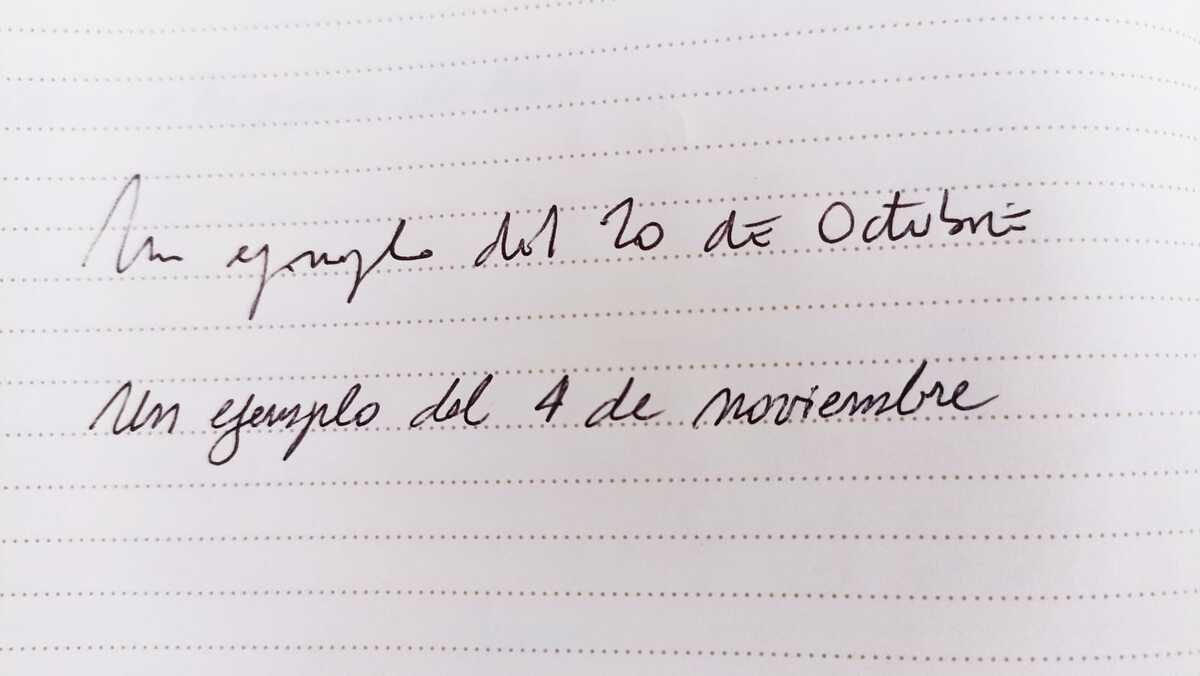 Un ejemplo del 20 de Octubre
Un ejemplo del 4 de noviembre